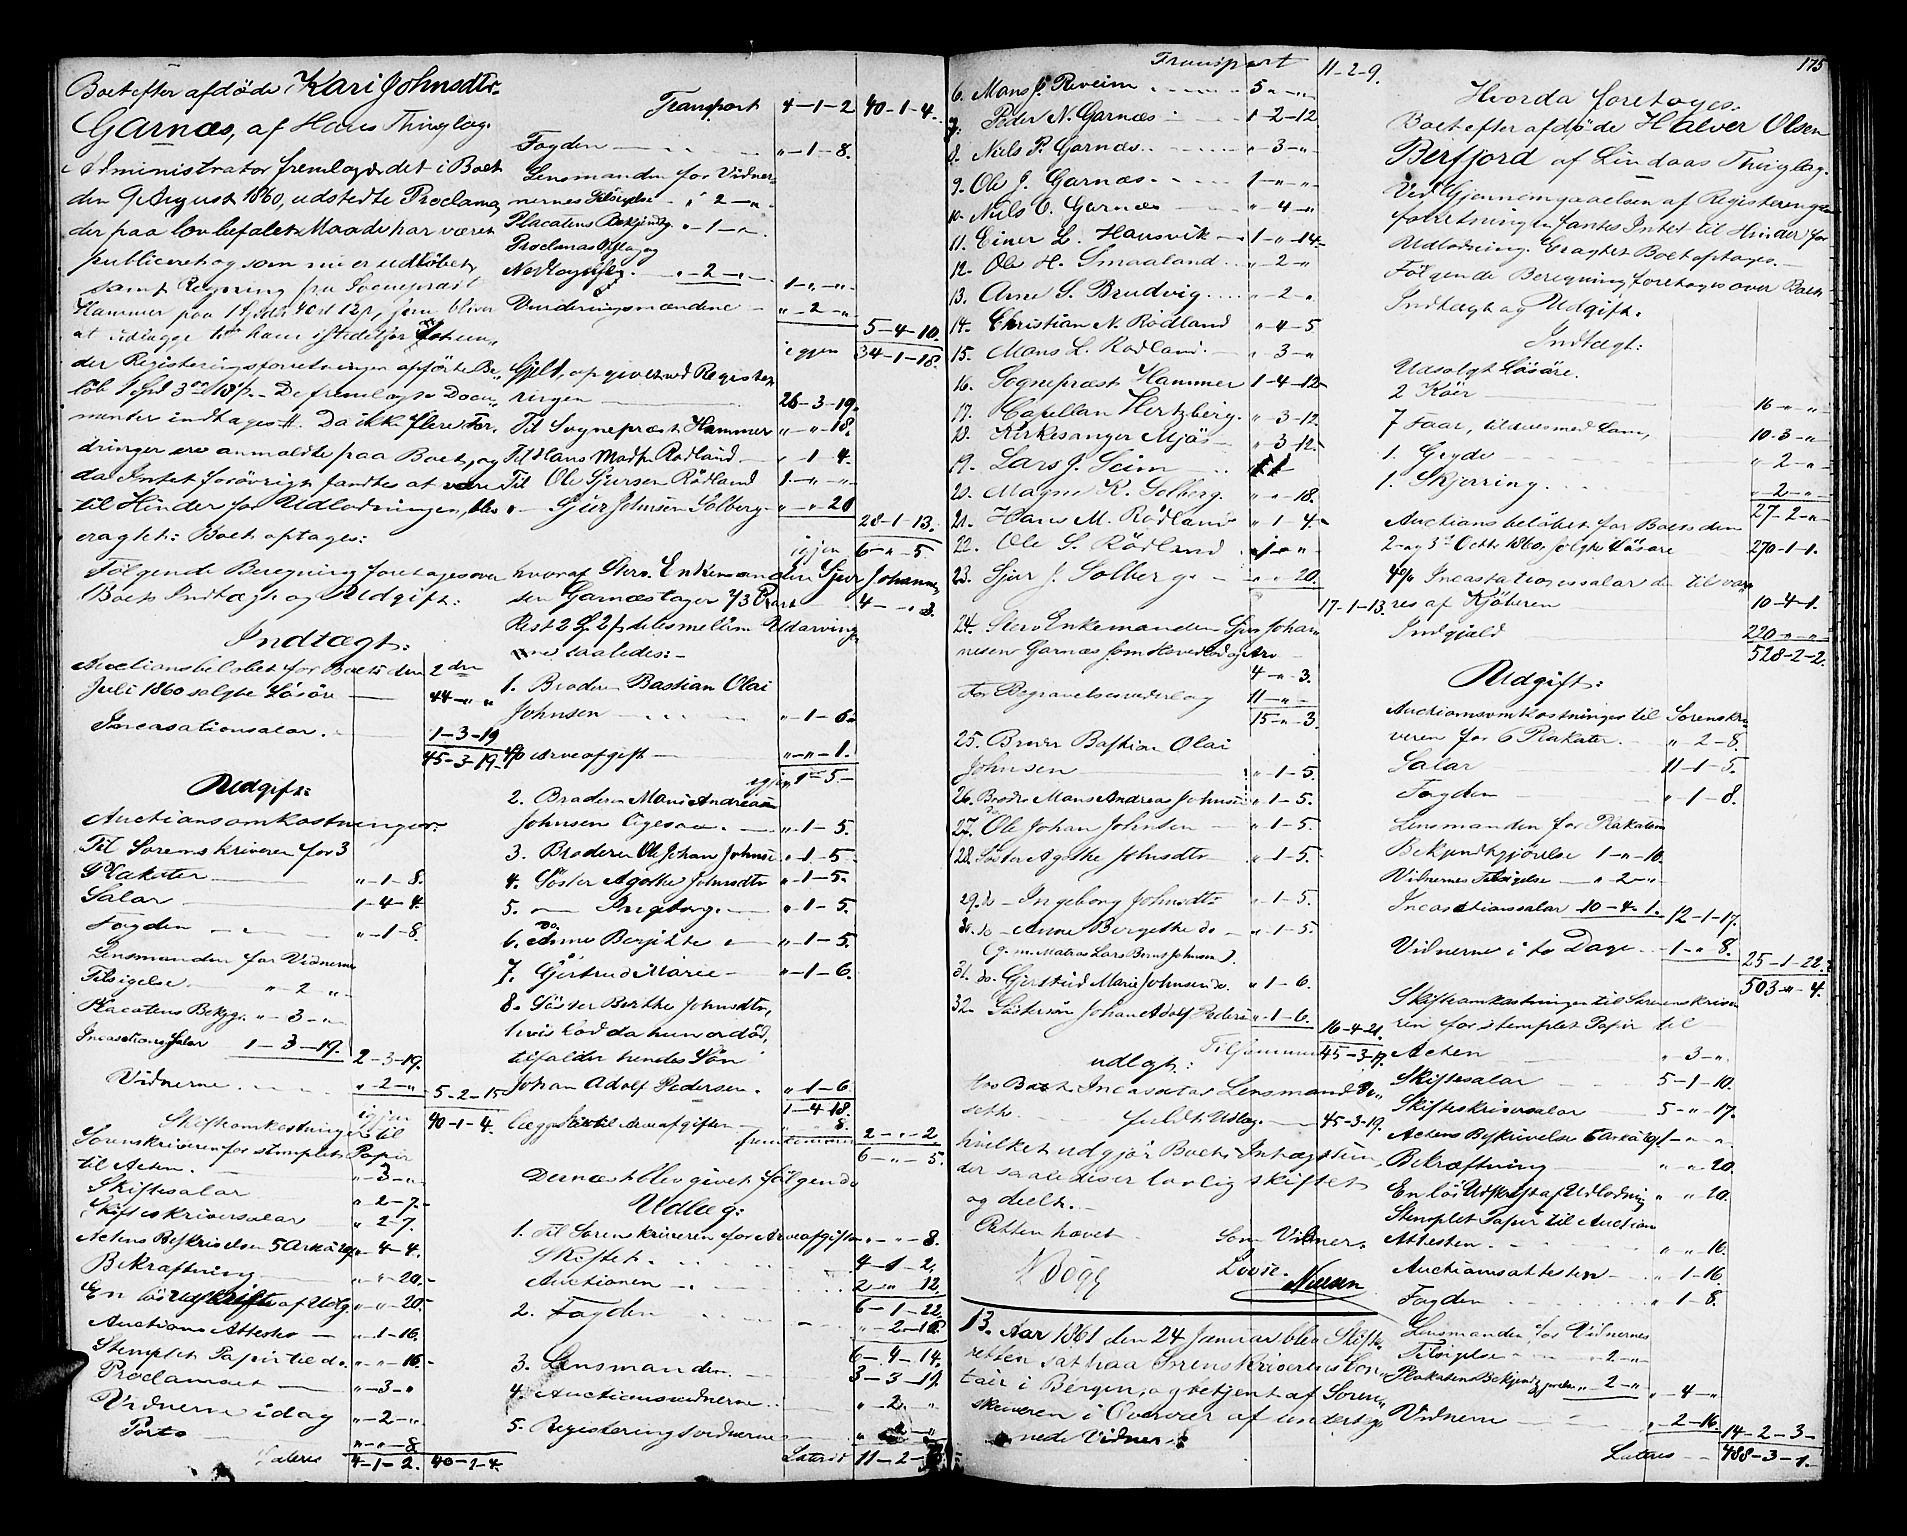 Boet efter afdöde Kari Johnsdtr
Garnæs, af Hans Thinglag.
Administrator fremlagde det i Boet
den 9 August 1860, udstedte Proclama,
der paa lovbefalet Maade har været
publiceret og som nu er udlöbet,
samt Regning fra Sognepræst
Hammer paa
at udlægge til ham istedetfor
der Registeringsforretningen opförte Be-
löb De fremlagte Docu-
menter indtages #. Da ikke flere For-
dringer ere anmeldte paa Boet, og
da Intet forövrigt fandtes at være
til Hinder for Udlodningen, blev
eragtet: Boet optages:
Følgende Beregning foretages over
Boets Indtægt og Udgift:
Indtægt:
Auctionsbelöbet for Boets den 2den
Juli 1860 solgte Lösöre 44-"-"
Incasationsalar. 1-3-19
45-3-19.
Udgift:
Auctionsomkostninger:
Til Sorenskriveren for 3
Placater "-1-8.
Salar 1-4-4
Fogden "-1-8.
Lensmanden for Vidnerne
Tilsigelse "-2-"
Placatens Bekjg. "-3-"
Incasations Salar 1-3-19. 2-3-19.
Vidnerne "-2-" 5-2-15
igjen 40-1-4.
Skifteomkostninger til
Sorenskriveren for stemplet Papir
til Acten. "-3-"
Skiftesalar "-2-7.
Skifteskriversalar "-2-7.
Actens Beskrivelse 5 Ark "-4-4.
Bekræftning "-"-20.
En lös Udskrift af Udlg. "-"-20.
Auctions Attesten "-1-16.
Stemplet Papir til do. "-"-16.
Proclamaet "-3-"
Vidnerne idag "-2-"
Porto "-"-8
Lateres 4-1-2. 40-1-4.
Transport 4-1-2 40-1-4.
Fogden "-1-8.
Lensmanden for Vidner-
nernes Tilsigelse "-2-"
Placatens Bekjendtg. "-1-"
Proclamas Opslag og
Nedtagelse. "-2-" 1-"-"
Vurderingsmændene "-2-"
5-4-10.
igjen 34-1-18.
Gjeld, opgivet ved Registe-
ringen 26-3-19.
Til Sognepræst Hammer "-"-18.
Til Hans Rödland "-1-4.
Til Ole Sjursen Rödland 1-"-"
"- Sjur Johnsen Solberg "-"-20
28-1-13.
igjen 6-"-5.
hvoraf Enkemanden Sjur Johanne-
sen Garnæs tager 2/3 Part 4-"-3.
Rest 2 deles mellem Udarving-
erne saaledes:
1. Broderen Bastian Olai
Johnsen "-1-6
Arveafgift "-"-1.
igjen "-1-5.
2. Broderen Mons Andreas
Johnsen "-1-5.
3. Broderen Ole Johan Johnsen "-1-5.
4. Söster Agathe Johnsdtr "-1-5.
5. Do. Ingeborg "-1-5.
6. Anne Bergitte "-1-5.
7. Do. Gjertrud Marie "-1-6.
8. Söster Berthe Johnsdtr,
hvis Lod da hun er död,
tilfalder hendes Sön
Johan Adolf Pedersen. "-1-6.
1-4-18.
"-"-8.
2-"-2
6-"-5.
Dernæst blev givet fölgende
Udlæg:
1. Til Sorenskriveren for Arveafgiften "-"-8.
Skiftet 4-1-2.
Auctionen 2-"-12.
6-1-22
2. Fogden "-2-16.
6-4-14.
3. Lensmanden 3-3-19.
4. Auctionsvidnerne "-2-"
5. Registeringsvidnerne "-2-"
Lateris 11-2-9.
Transport 11-2-9.
6. Mons J. Röveim 5-"-"
7. Peder N. Garnæs 1-2-12
8. Niels P. Garnæs "-3-"
9. Ole J. Garnæs 1-"-"
10. Niels O. Garnæs "-4-"
11. Einer L. Hausvik 1-"-14
12. Ole H. Smaaland "-2-"
13. Arne S. Brudvig "-2-"
14. Christian N. Rödland "-4-5
15. Mons L. Rödland "-3-"
16. Sognepræst Hammer 1-4-12
17. Capellan Hertzberg "-3-12
18. Kirkesanger Mjös "-3-12
19. Lars J. Seim
20. Magne K. Solberg. "-"-18.
21. Hans M. Rödland "-1-4-
22. Ole S. Rödland 1-"-"
23. Sjur J. Solberg "-"-20.
17-1-13.
24. Enkemanden Sjur Johan-
nesen Garnæs som Hovedlod og Arv
4-"-3.
for Begravelsesudlæg 11-"-"
15-"-3.
25. Broder Bastian Olai
Johnsen "-1-5.
26. Broder Mons Andreas Johnsen "-1-5.
27. Do Ole Johan Johnsen "-1-5.
28. Söster Agathe Johnsdtr "-1-5.
29. do Ingeborg Johnsdtr "-1-5.
30. do Anne Bergethe do "-1-5.
(g. m. Matros Lars Bernt Johnsen).
31. do. Gjertrud Marie Johnsen do. "-1-6.
32. Söstersön Johan Adolf Pedersen "-1-6.
16-4-21.
Tilsammen 45-3-19.
udlgt:
Hos Boets Incasator Lensmand
fuldt Udlæg 45-3-19.
hvilket udgjör Boets Indtægtsum,
der saaledes er lovlig skiftet
og deelt.
Retten hævet
Som Vidner.
N Bögh
Lovie. Nielsen
13. Aar 1861 den 24 Januar blev Skifte-
retten sat paa Sorenskriverens Con-
toir i Bergen, og betjent af Soren-
skriveren i Overvær af undertg-
nede Vidner:
175
Hvorda foretoges:
Boet efter afdöde Halver Olsen
Berfjord af Lindaas Thinglag.
Ved Gjennemgaaelsen af Registerings-
forretningen fantes Intet til Hinder for
Udlodning. Eragtet Boet optages.
Følgende Beregning foretages over Boets
Indtægt og Udgift.
Indtægt:
Udsolgt Lösöre.
2 Köer 16-"-"
7 Faar, tildeels med Lam, 10-3-"
1. Gryde "-2-"
1. Skjerring "-2-"
27-2-"
Auctionsbelöbet for Boets den
2 og 3die Octbr 1860 solgte Lösöre 270-1-1.
4% Incasationssalar der tilsva-
res af Kjöberen 10-4-1.
Indgjæld 220-"-"
528-2-2.
Udgift:
Auctionsomkostninger til Sorenskri-
veren for 6 Plakater "-2-8.
Salar 11-1-5.
Fogden "-1-8.
Lensmanden for Plakaten
Bekjendtgjörelse 1-"-16.
Vidnernes Tilsigelse "-2-"
Incasationssalar 10-4-1. 12-1-17.
Vidnerne i to Dage 1-"-8.
25-1-22.
503-"-4.
Skifteomkostninger til Sorenskrive-
ren for stemplet Papir til
Acten "-3-"
Skiftesalar 5-1-10.
Skifteskriversalar 5-"-17.
Actens Beskrivelse 6 Ark 1-"-"
Bekræftning "-"-20.
En lös Udskrift af Udlodning "-"-20.
Stemplet Papir til Auctions
Attesten "-"-16.
Auctionsattesten "-1-16.
Fogden "-1-8.
Lensmanden for Vidnernes
Tilsigelse "-2-"
Plakatens Bekjendtgjörelse "-2-" "-4-"
Vidnerne "-2-16. 14-2-3-
Lateres 488-3-1.